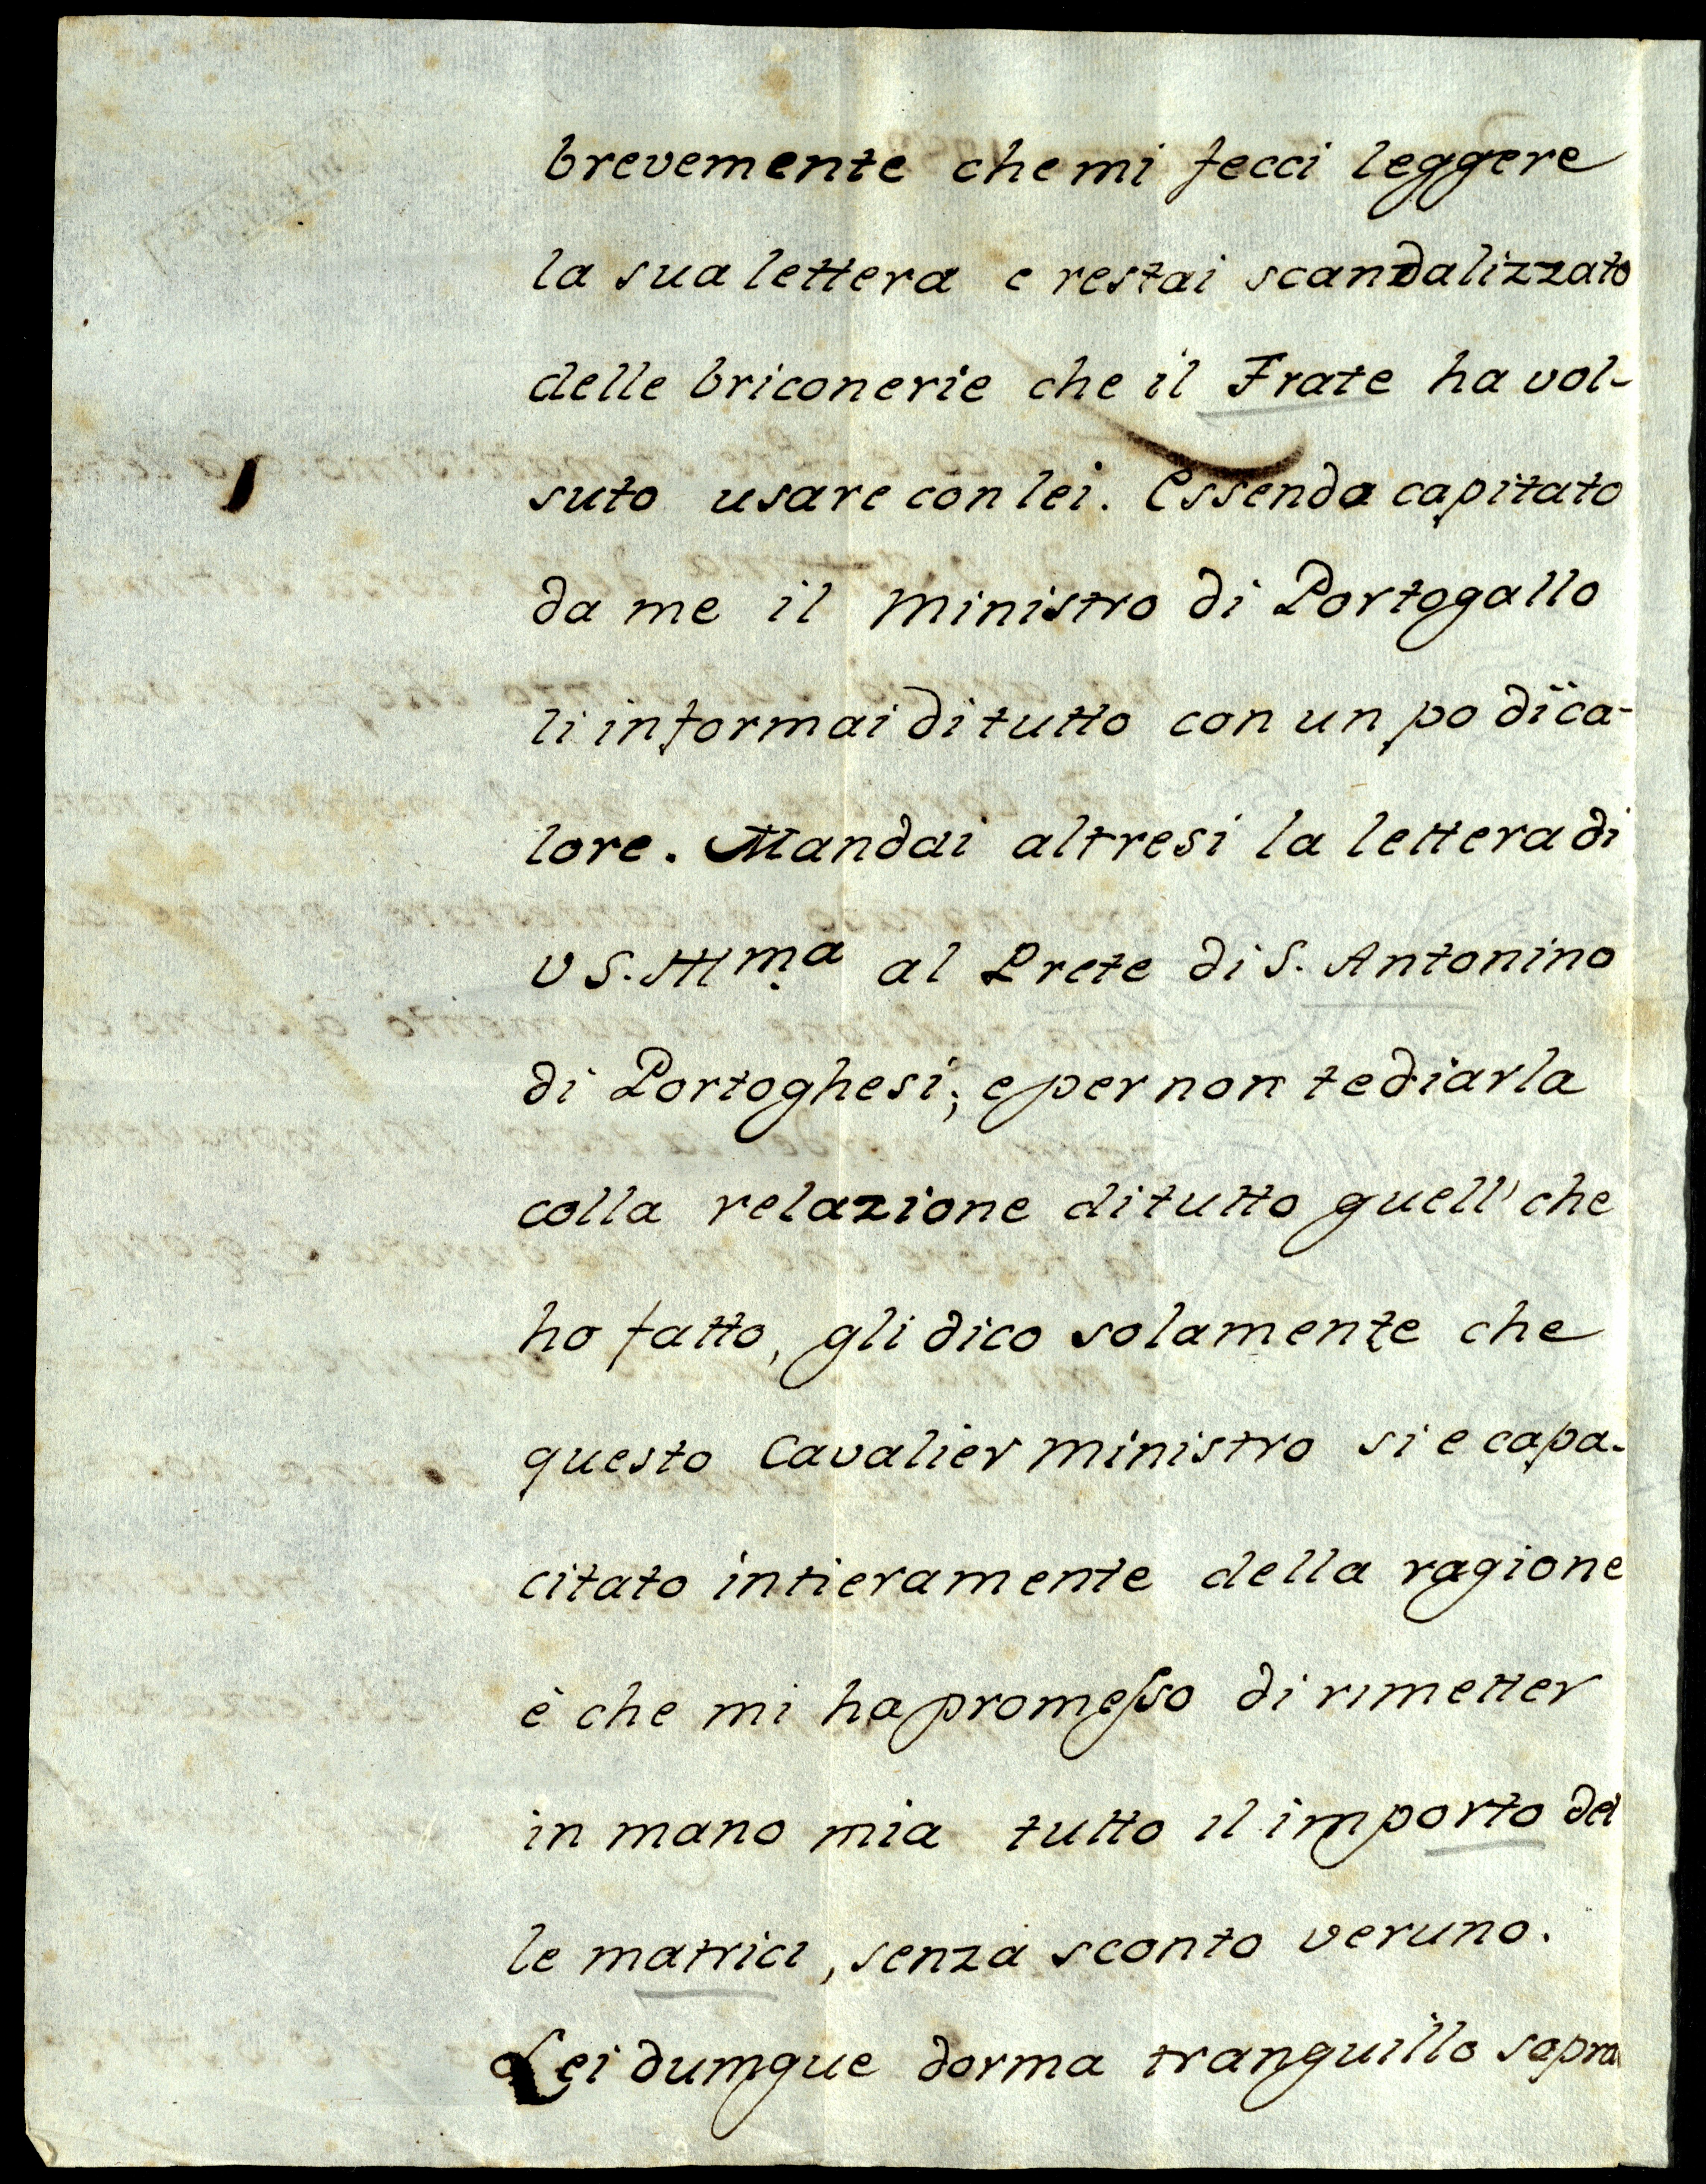 brevemente che mi fecci leggere
la sua lettera e restai scandalizzato
delle briconerie che il Frate ha vol-
suto usare con lei. Essendo capitato
da me il Ministro di Portogallo
li informai di tutto con un po di ca-
lore. Mandai altresi la lettera di
VS. Illma al Prete di S. Antonino
di Portoghesi; e per non tediarla
colla relazione di tutto quell' che
ho fatto, gli dico solamente che
questo Cavalier Ministro si e capa-
citato intieramente della ragione
è che mi ha promesso di rimetter
in mano mia tutto il importo del
le matrici, senza sconto veruno.
Lei dumque dorma tranquillo sopra